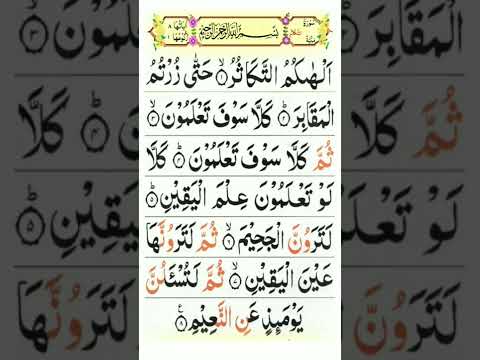 بِسْمِ اللّٰهِ الرَّحْمٰنِ الرَّحِيْمِ
اَلْهٰىكُمُ التَّكَاثُرُ ۙ﴿۱﴾ حَتّٰى زُرْتُمُ
الْمَقَابِرَ ؕ﴿۲﴾ كَلَّا سَوْفَ تَعْلَمُوْنَ ۙ﴿۳﴾
ثُمَّ كَلَّا سَوْفَ تَعْلَمُوْنَ ؕ﴿۴﴾ كَلَّا
لَوْ تَعْلَمُوْنَ عِلْمَ الْيَقِيْنِ ؕ﴿۵﴾
لَتَرَوُنَّ الْجَحِيْمَ ۙ﴿۶﴾ ثُمَّ لَتَرَوُنَّهَا
عَيْنَ الْيَقِيْنِ ۙ﴿۷﴾ ثُمَّ لَتُسْـَٔلُنَّ
يَوْمَئِذٍ عَنِ النَّعِيْمِ ﴿۸﴾